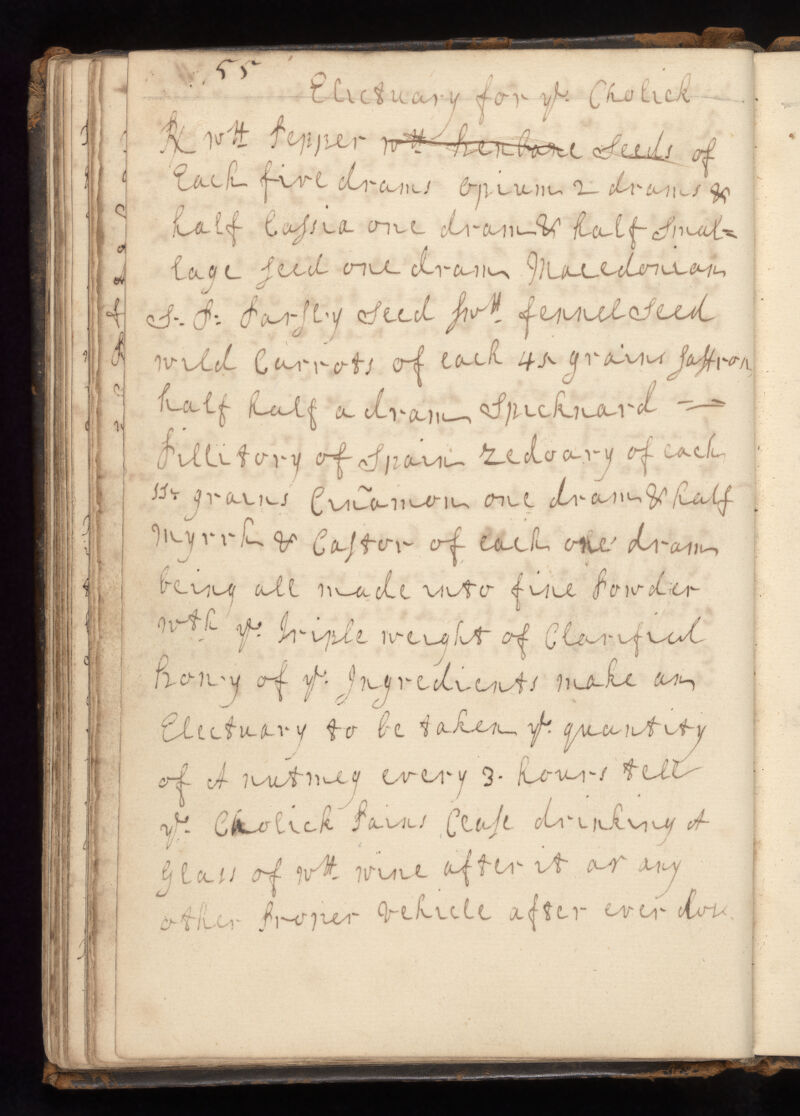 55
Electuary for ye. Cholick
℞ wtt Pepper wtt henbane seeds of
Each five drams opium 2 drams &
half Cassia one dram & half smal=
lage seed one dram Macedonian
S. P: Parsley seed swtt. fennel seed
wild Carrots of each 45 grains saffron
half half a dram Spicknard
Pillitory of Spain Zedoary of each
55 grains Cin̄amon one dram & half
Myrrh & Castor of each one dram
being all made into fine Powder
wth ye. Triple weight of Clarified
honey of ye. Ingredients make an
Electuary to be taken ye. quantity
of A nutmeg every 3. hours tell
ye. Cholick Pains Cease drinking A
Glass of wtt. wine after it or any
other Proper Vehicle after ever dose